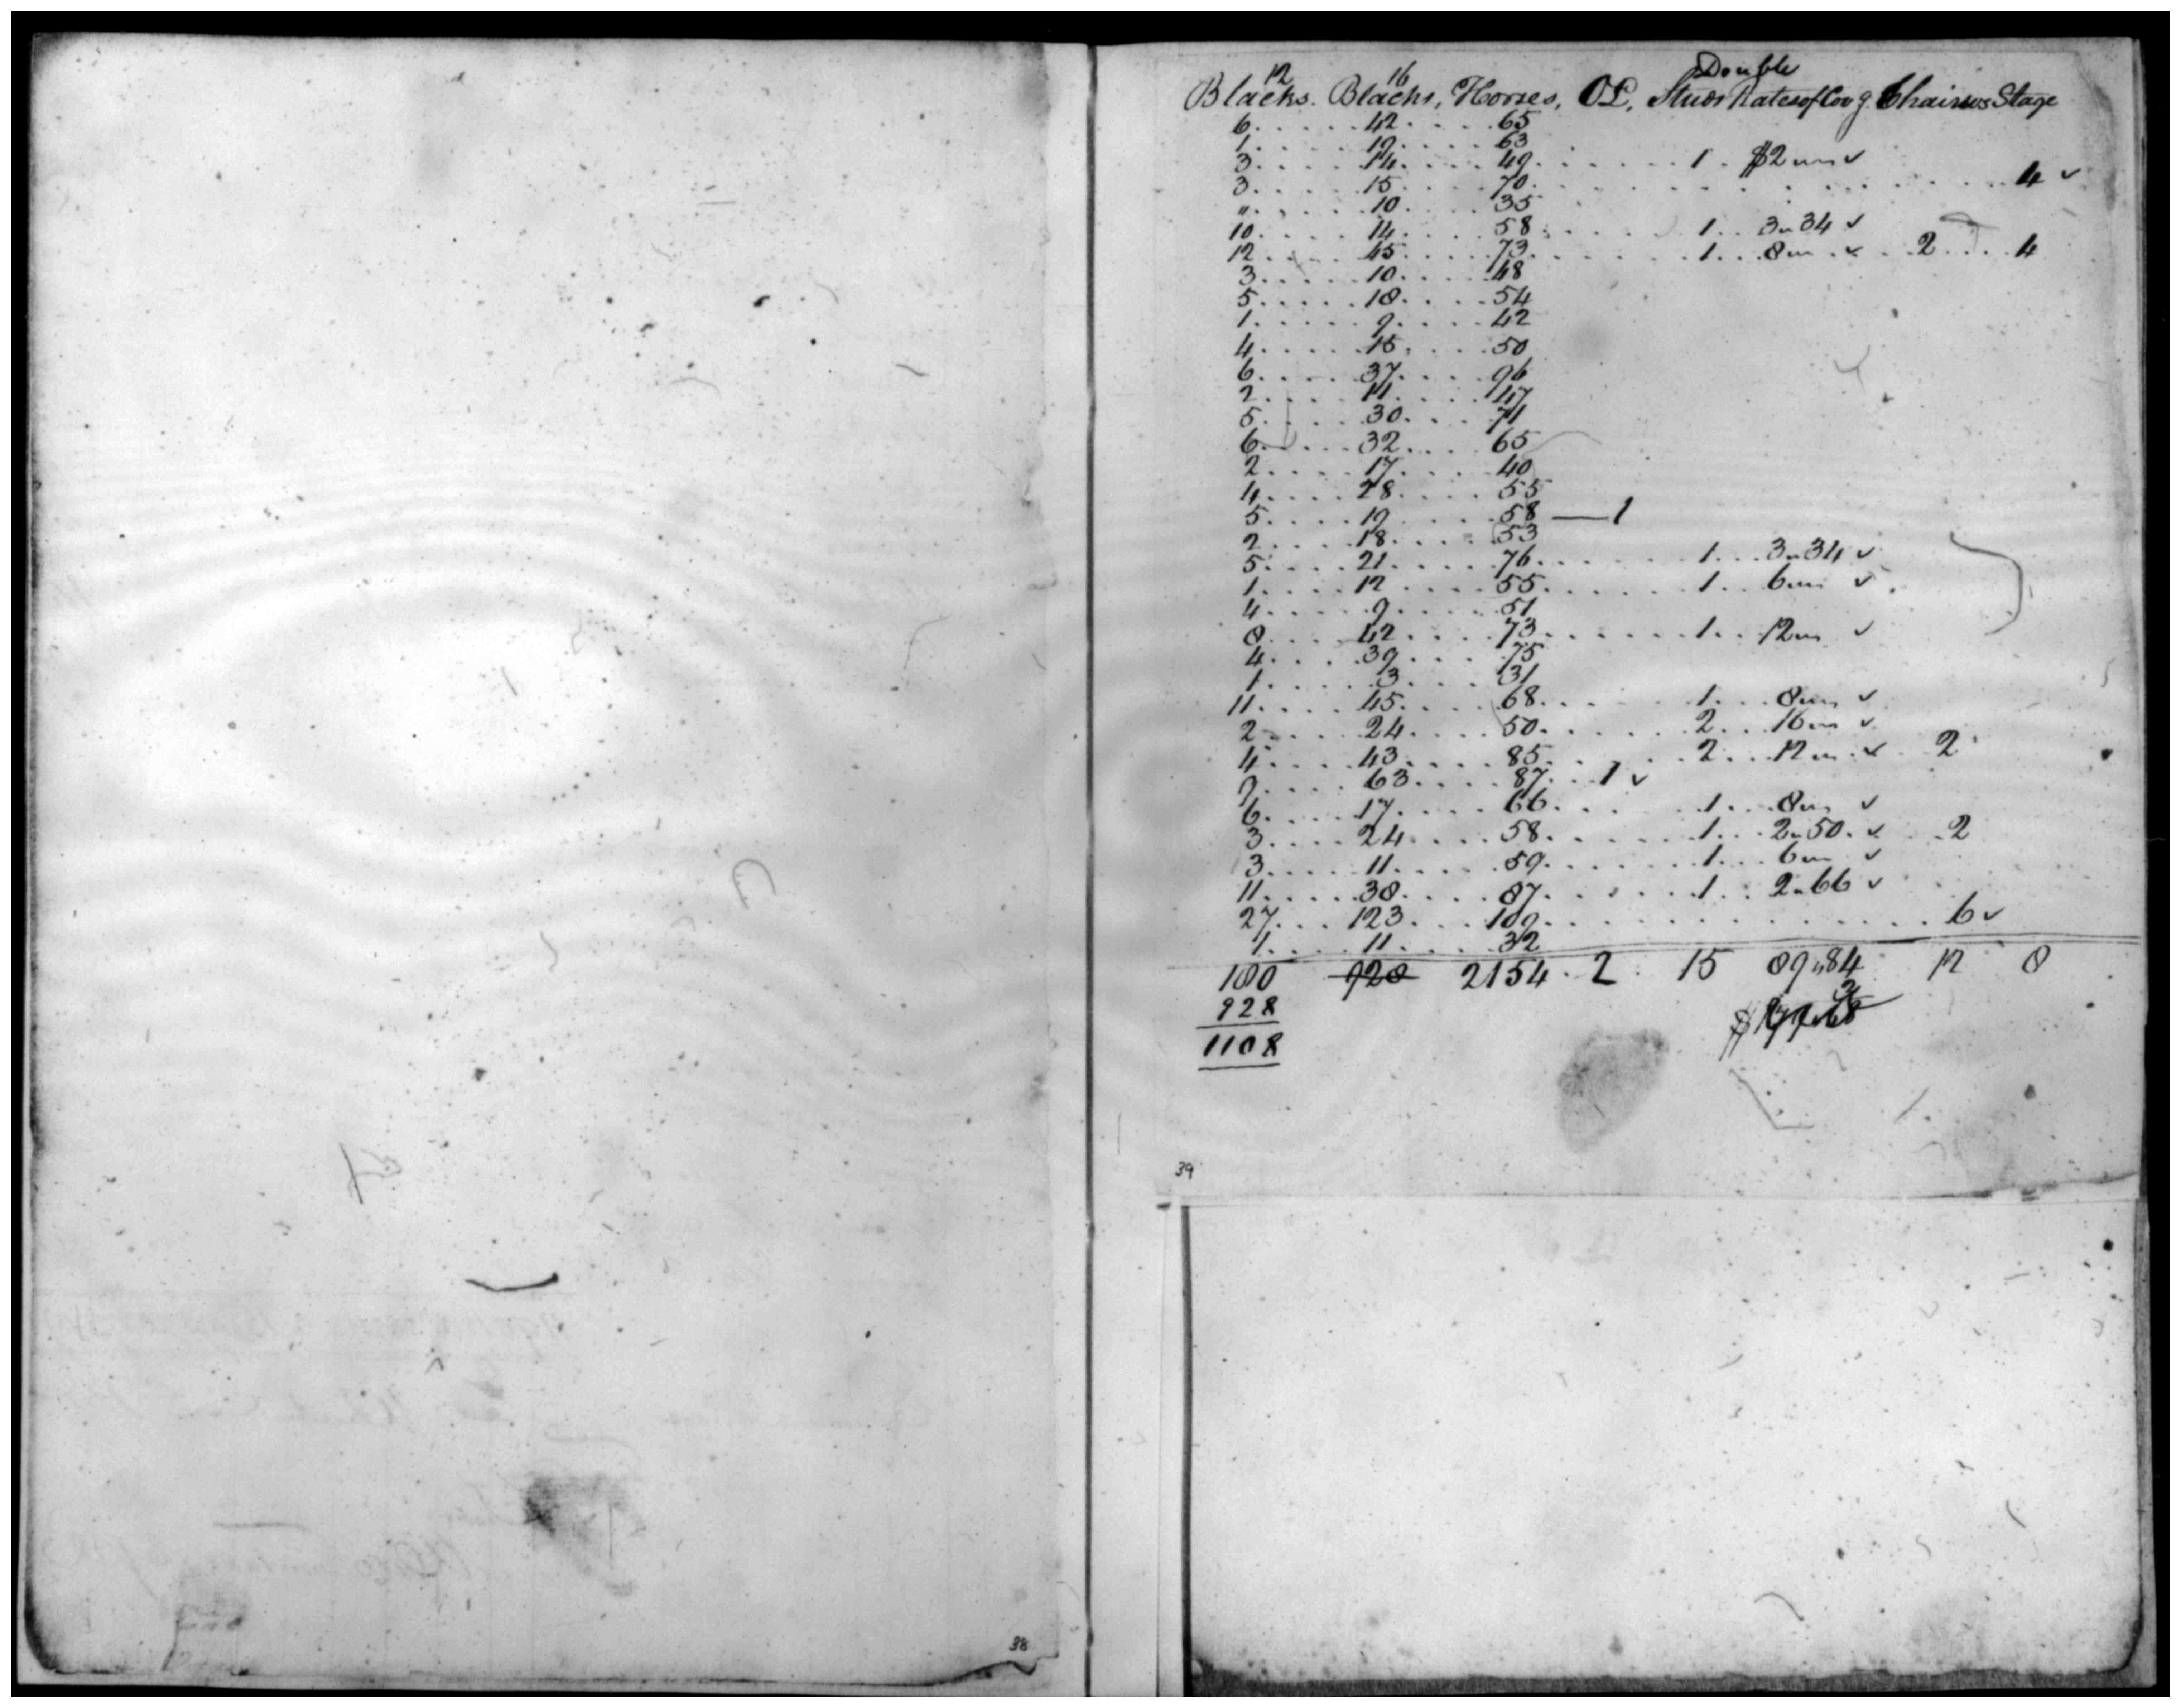 12 16 Double
Blacks. Blacks, Horses, OL, Studs Rates of Cov g. Chairs Stage
6 . . . . . 42 . . . . 65
1 . . . . . 19 . . . . 63
3 . . . . . 14 . . . . 49 . . . . . . 1 . $2 „ „ ✓
3 . . . . . 15 . . . . 70 . . . . . . . . . . . . . . 4 ✓
„ . . . . . 10 . . . . 35
10 . . . . 14 . . . . 58 . . . . . 1 . . 3 „ 34 ✓
12 . . . . 45 . . . . 73 . . . . . 1 . . . 8 „ „ ✓ . . 2 . . . 4
3 . . . . . 10 . . . . 48
5 . . . . . 18 . . . . 54
1 . . . . . 9 . . . . 42
4 . . . . . 15 . . . . 50
6 . . . . 37 . . . . 96
2 . . . . 11 . . . . 47
5 . . . . 30 . . . 71
6 . . . . 32 . . . 65
2 . . . . 17 . . . . 40
4 . . . . 28 . . . . 55
5 . . . . 19 . . . . 58 — 1
2 . . . . 18 . . . . 53
5 . . . . 21 . . . . 76 . . . . . 1 . . . 3 „ 34 ✓
1 . . . . 12 . . . . 55 . . . . . . 1 . . 6 „ „ ✓
4 . . . . 9 . . . . 51
8 . . . . 42 . . . . 73 . . . . . . 1 . . 12 „ „ ✓
4 . . . . 39 . . . 75
1 . . . . . 3 . . . . 31
11 . . . . 45 . . . . 68 . . . . . 1 . . . 8 „ „ ✓
2 . . . . 24 . . . . 50 . . . . . . 2 . . 16 „ „ ✓
4 . . . . 43 . . . . 85 . . . . . 2 . . . 12 „ „ ✓ 2
9 . . . . 63 . . . . 87 . . . 1 ✓
6 . . . . 17 . . . . 66 . . . . 1 . . . 8 „ „ ✓
3 . . . . 24 . . . . 58 . . . . . 1 . . . 2 „ 50 . ✓ . 2
3 . . . . 11 . . . . 59 . . . . . . 1 . . . 6 „ „ ✓
11 . . . . 38 . . . . 87 . . . . 1 . . 2 „ 66 ✓
27 . . . 123 . . . 109 . . . . . . . . . . . . . 6 ✓
1 . . . . 11 . . . . 32
180 928 2154 . 2 15 89 „ 84 12 8
928
1108
39
38